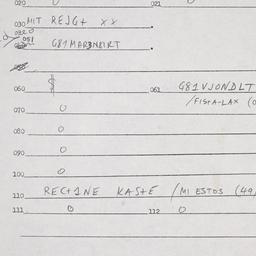 020 021
030 MIT REJG+ XX
081 G81MARDNDIRT
060 $ 061 G81VJONDLT
/FISTA-LAX
070 0
080 0
090 0
100 0
110 RECTINE KASTE /MI ESTOS (49
111 0 112 0